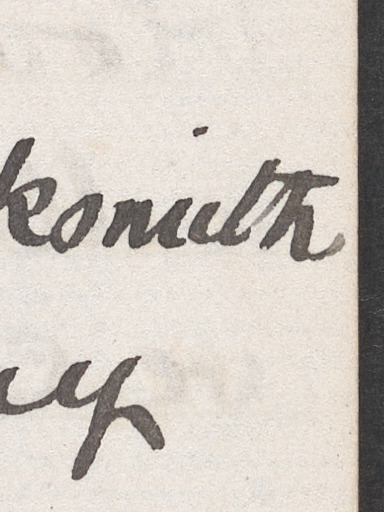 ksmith
y